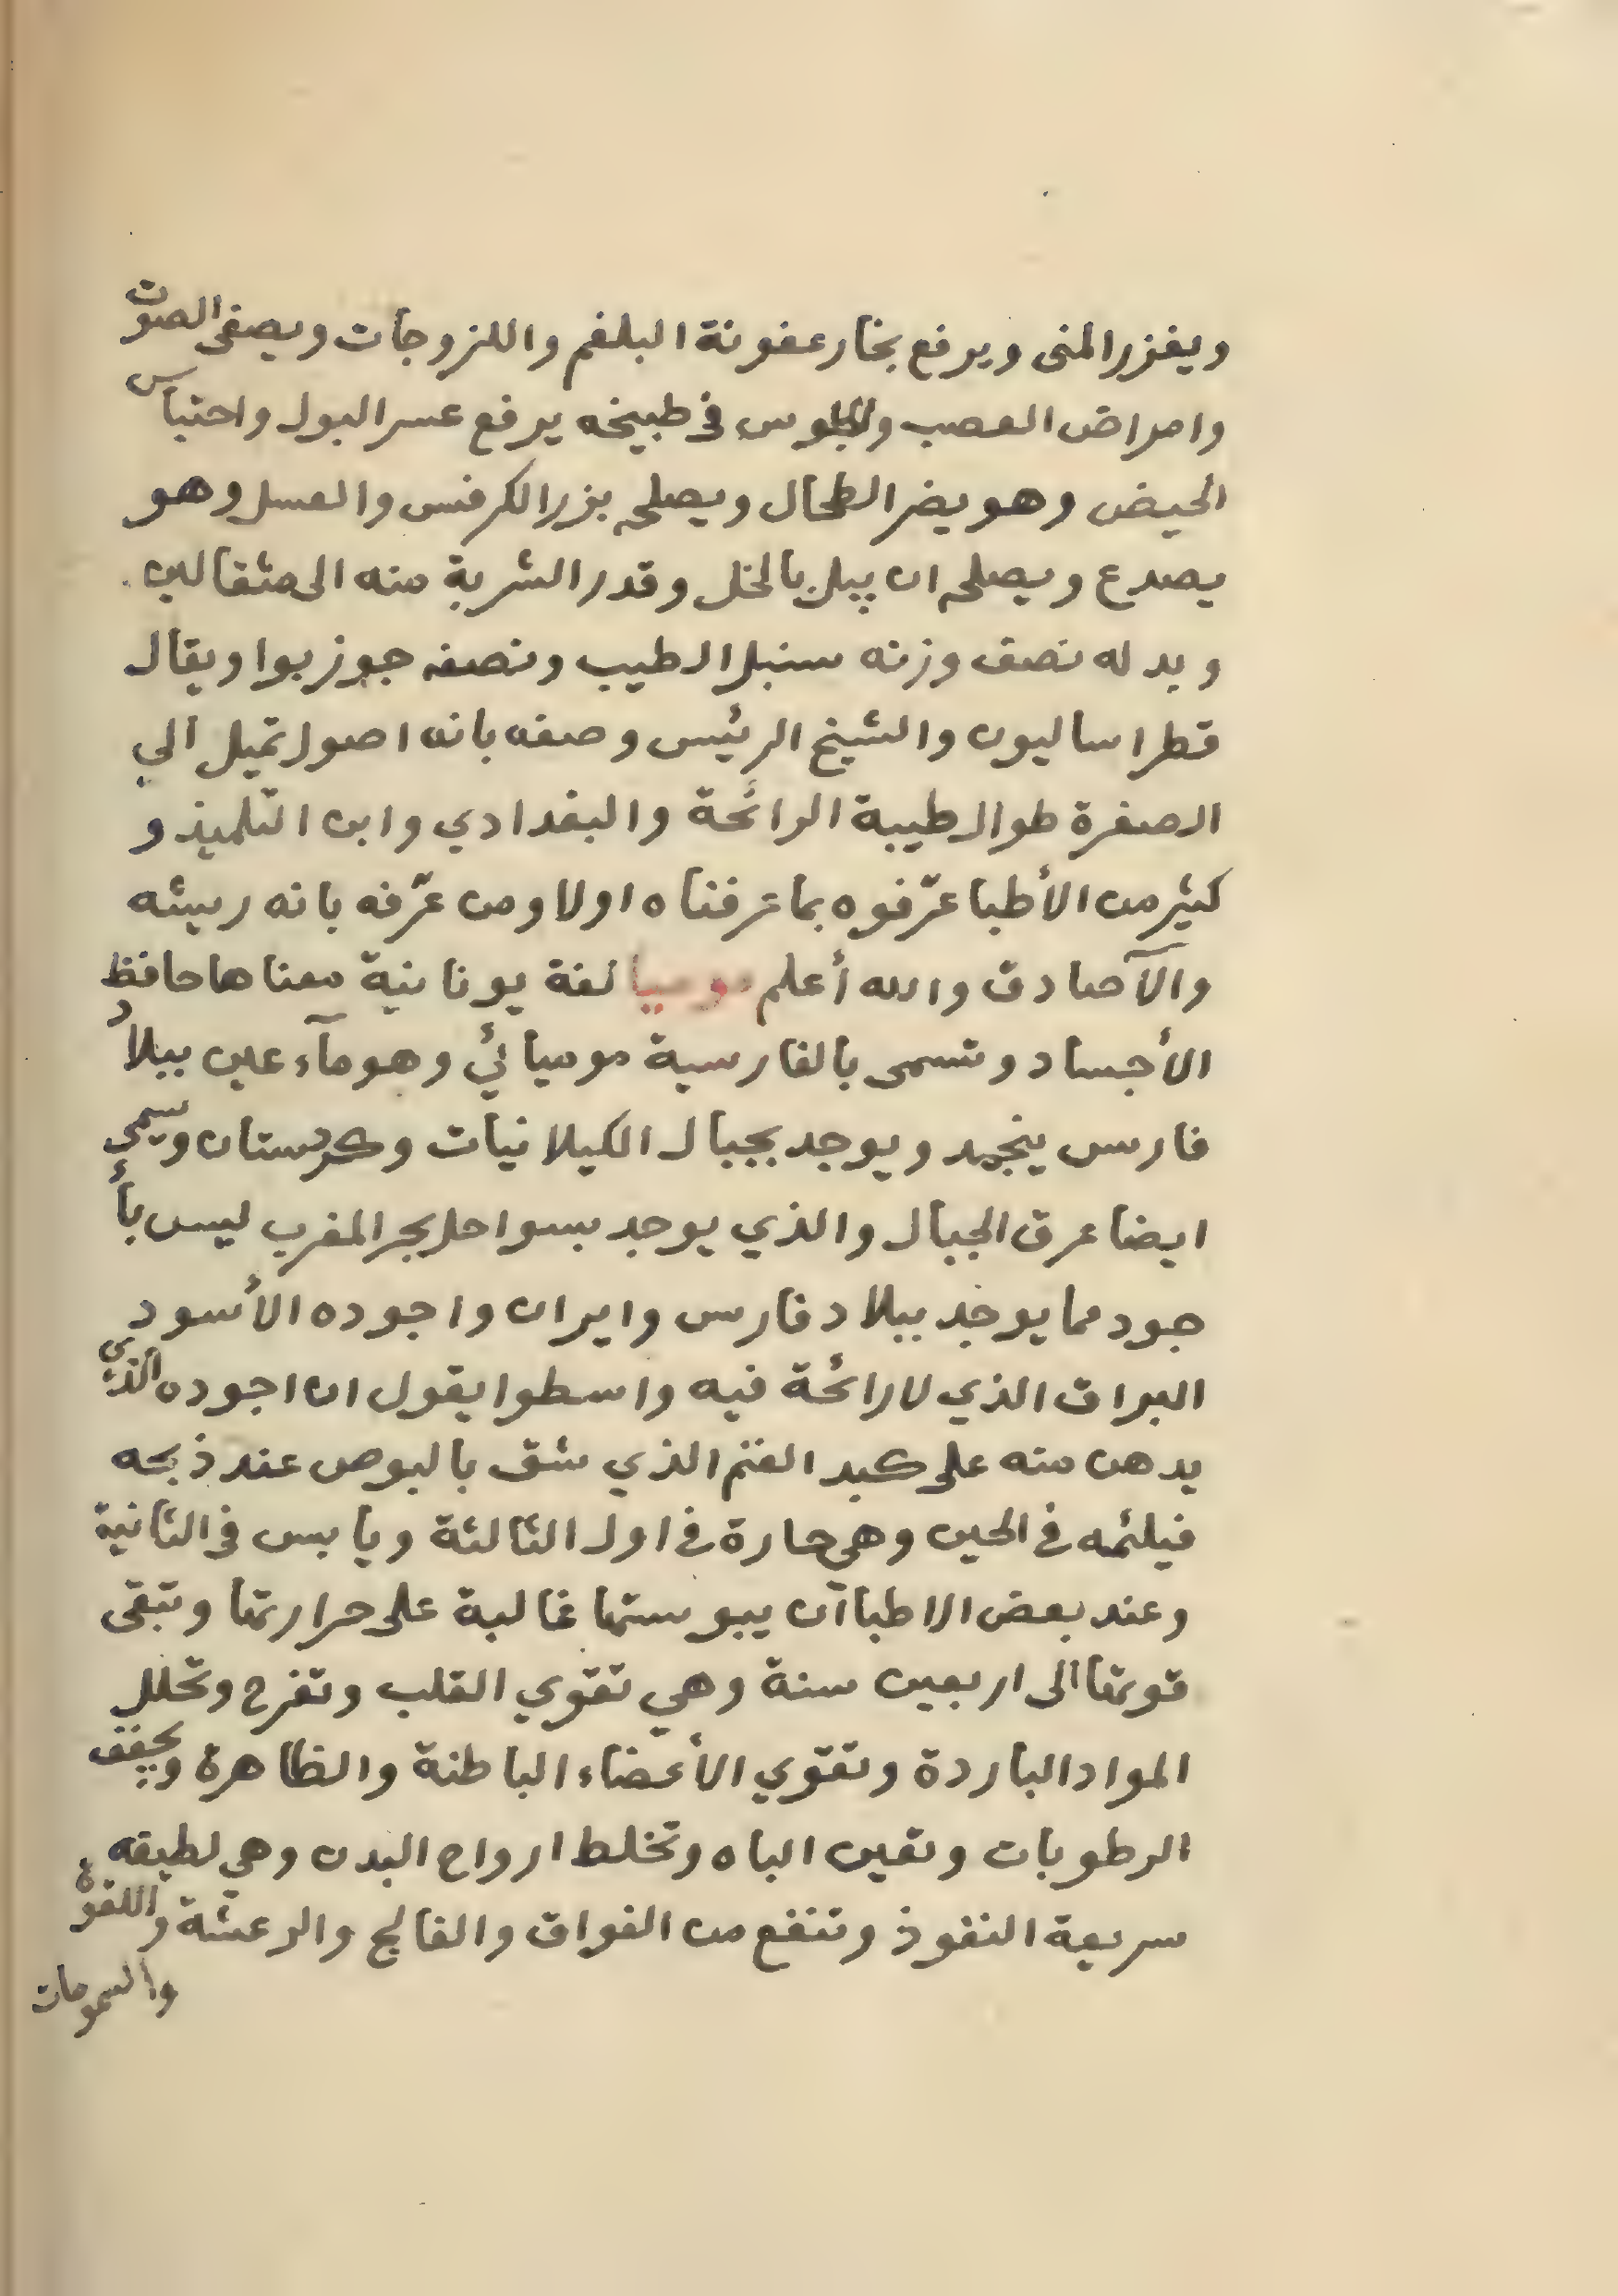 ويغزر المنى ويرفع بخار عفونة البلغم واللزوجات ويصفى الصوت
وامراض العصب والجلوس فى طبيخه يرفع عسر البول واحتباس
الحيض وهو يضر الطحال ويصلحه بزر الكرفس والعسل وهو
يصدع ويصلحه ان يبل بالخل وقدر الشربة منه الى مثقالين
وبدله نصف وزنه سنبل الطيب ونصفه جوز بوا ويقال
قطراساليون والشيخ الرئيس وصفه بانه اصول تميل الي
الصفرة طوال طيبة الرائحة والبغدادي وابن التلميذ و
كثير من الأطبا عرّفوه بما عرفناه اولا ومن عرّفه بانه ريشه
والآصادق والله أعلم موميا لغة يونانية معناها حافظ
الأجساد وتسمى بالفارسية موميائي وهو مآء عين ببلاد
فارس ينجمد ويوجد بجبال الكيلانيات وكردستان ويسمى
ايضا عرق الجبال والذي يوجد بسواحل بحر المغرب ليس بأ
جود مما يوجد ببلاد فارس وايران واجوده الأسود
البراق الذي لا رائحة فيه واسطوا يقول ان اجوده الذي
يدهن منه على كبد الغنم الذي شق بالبوص عند ذبحه
فيلئمه فى الحين وهي حارة فى اول الثالثة ويابس فى الثانية
وعند بعض الاطبا ان يبوستها غالبة على حرارتها وتبقى
قوتها الى اربعين سنة وهي تقوي القلب وتفرح وتحلل
المواد الباردة وتقوي الأعضاء الباطنة والظاهرة ويجفف
الرطوبات وتعين الباه وتخلط ارواح البدن وهي لطيفه
سريعة النفوذ وتنفع من الفواق والفالج والرعشة واللقوة
والسمومات